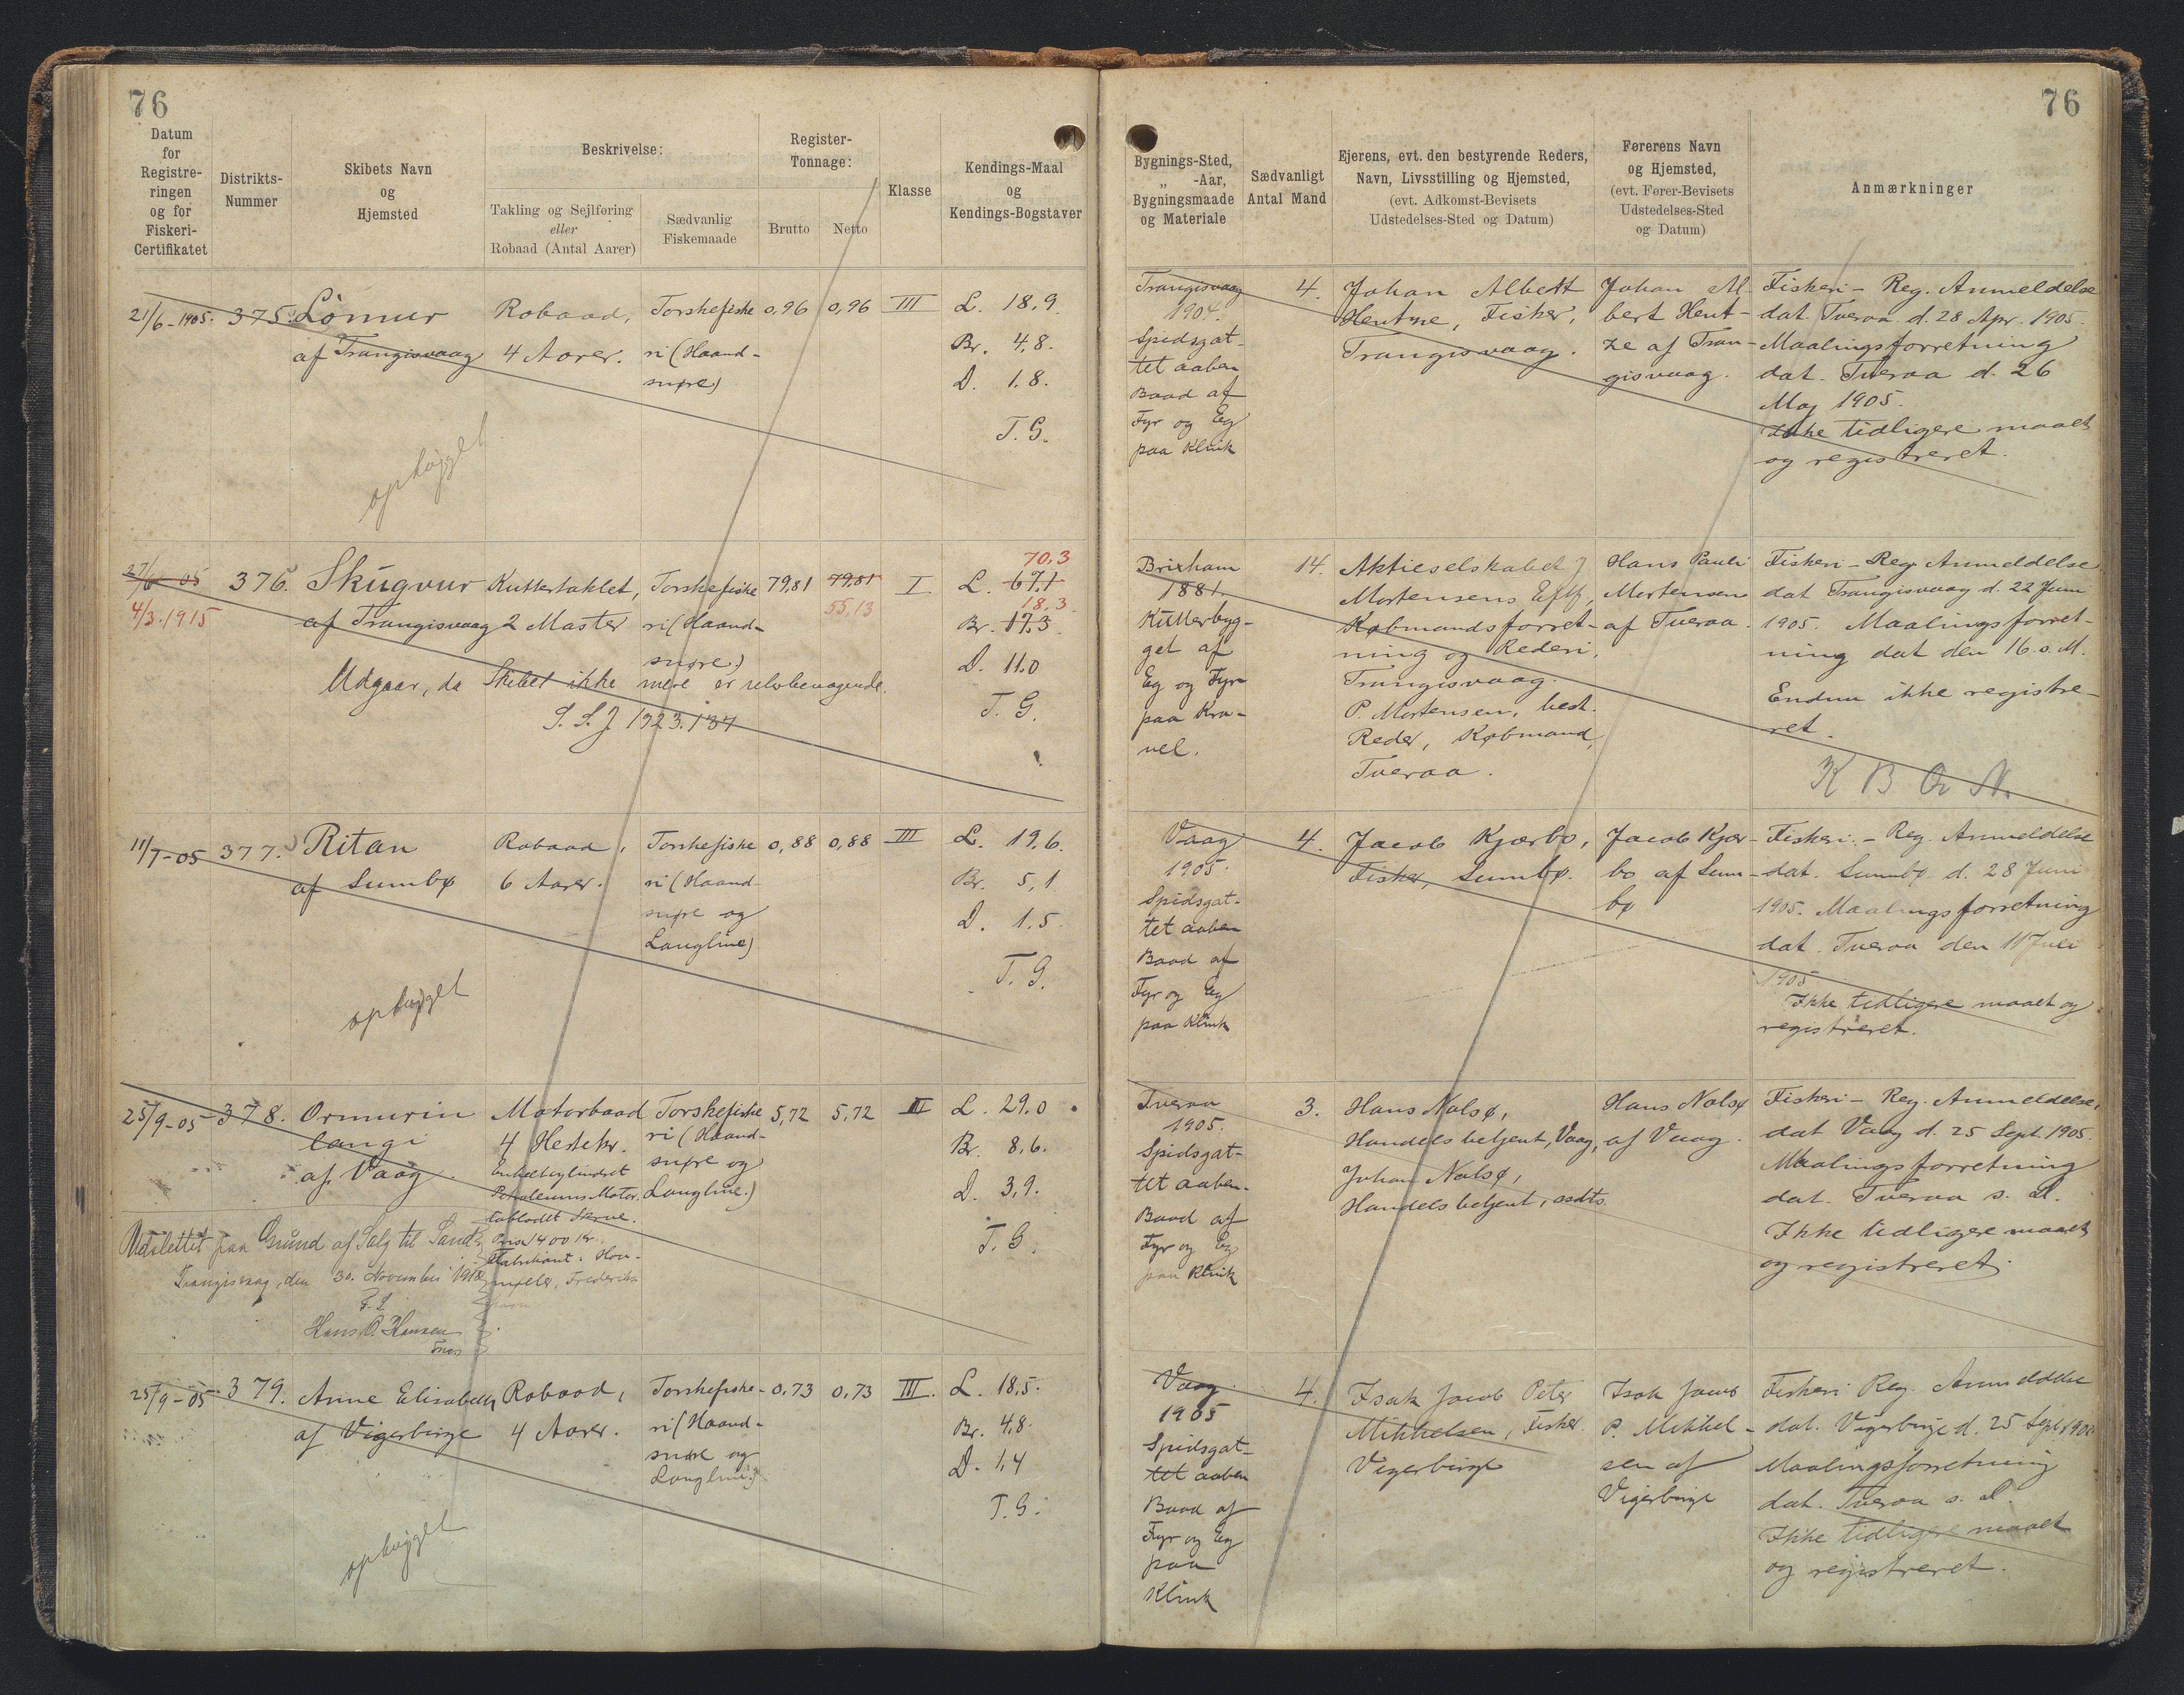 76
76
Datum
for
Registre-
ringen
og for
Fiskeri-
Certifikatet
Distrikts-
Nummer
Skibets Navn
og
Hjemsted
Beskrivelse:
Takling og Sejlføring
eller
Robaad (Antal Aarer)
Sædvanlig
Fiskemaade
Register-
Tonnage:
Brutto
Netto
Klasse
Kendings-Maal
og
Kendings-Bogstaver
Bygnings-Sted,
„ -Aar,
Bygningsmaade
og Materiale
Sædvanligt
Antal Mand
Ejerens, evt. den bestyrende Reders,
Navn, Livsstilling og Hjemsted,
(evt. Adkomst-Bevisets
Udstedelses-Sted og Datum)
Førerens Navn
og Hjemsted,
(evt. Fører-Bevisets
Udstedelses-Sted
og Datum)
Anmærkninger
21/6-1905.
375.
Lómur
af Trangisvaag
ophugget
Robaad,
4 Aarer.
Torskefiske
ri (Haand-
snøre)
0,96
0,96
III
L. 18,9.
Br. 4,8.
D. 1,8.
T. G.
Trangisvaag
1904.
Spidsgat-
tet aaben
Baad af
Fyr og Eg
paa Klink
4.
Johan Albert
Hentze, Fisker,
Trangisvaag.
Johan Al-
bert Hent-
ze af Tran-
gisvaag.
Fiskeri- Reg. Anmeldelse
dat. Tveraa d. 28 Apr. 1905.
Maalingsforretning
dat. Tveraa d. 26
Maj 1905.
Ikke tidligere maalt
og registreret.
27/6 - 05
4/3.1915
376.
Skúgvur
af Trangisvaag
Kuttertaklet,
2 Master
Torskefiske
ri (Haand-
snøre)
Udgaar, da Skibet ikke mere er selvbevægende.
S. S. J. 1923. 137
79,81
79,81
55,13
I
70,3
L. 67,1
18,3.
Br. 17,3.
D. 11,0
T. G.
Brixham
1881.
Kutterbyg-
get af
Eg og Fyr
paa Kra-
vel.
14.
Aktieselskabet J
Mortensens Eftf.,
Købmandsforret-
ning og Rederi,
Trangisvaag.
P. Mortensen, best.
Reder, Købmand,
Tveraa.
Hans Pauli
Mortensen
af Tveraa.
Fiskeri-Reg Anmeldelse
dat Trangisvaag d. 22 Juni
1905. Maalingsforret-
ning dat den 16. s. M.
Endnu ikke registre-
ret.
11/7-05
377.
Ritan
af Sumbø
ophugget
Robaad,
6 Aarer.
Torskefiske
ri (Haand-
snøre og
Langline)
0,88
0,88
III
L. 19,6.
Br. 5,1
D. 1,5.
T. G.
Vaag
1905.
Spidsgat-
tet aaben
Baad af
Fyr og Eg
paa Klink
4.
Jacob Kjærbo,
Fisker, Sumbø.
Jacob Kjær-
bo af Sum-
bø
Fiskeri.- Reg. Anmeldelse
dat. Sumbø d. 28 Juni
1905. Maalingsforretning
dat. Tveraa den 11 Juli
1905
Ikke tidligere maalt og
registreret.
25/9-05
378.
Ormurin
langi
af Vaag
Motorbaad
4 Hestekr.
Enkeltcylindret
Petroleums Motor.
tobladet Skrue.
Pris 1400 Kr.
Fabrikant: Hou-
møller, Frederiks
havn
Torskefiske
ri (Haand-
snøre og
Langline.)
Udslettet paa Grund af Salg til Sand
Trangisvaag, den 30. November 1918
Hans P. Hansen
5,72
5,72
II
L. 29,0
Br. 8,6.
D. 3,9.
T. G.
Tveraa
1905.
Spidsgat-
tet aaben.
Baad af
Fyr og Eg
paa Klink
3.
Hans Nolsø,
Handelsbetjent, Vaag,
Johan Nolsø,
Handelsbetjent, ssdts.
Hans Nolsø
af Vaag.
Fiskeri- Reg. Anmeldelse,
dat Vaag d. 25 Sept. 1905.
Maalingsforretning
dat. Tveraa s. D.
Ikke tidligere maalt
og registreret.
25/9-05
379.
Anne Elisabeth
af Vigerbirge
ophugget
Robaad,
4 Aarer.
Torskefiske-
ri (Haand-
snøre og
Langline.)
0,73
0,73
III.
L. 18,5.
Br. 4,8.
D. 1,4
T. G.
Vaag
1905
Spidsgat-
tet aaben
Baad af
Fyr og Eg
paa
Klink
4.
Isak Jacob Peter
Mikkelsen, Fisker
Vigerbirge
Isak Jacob
P. Mikkel-
sen af
Vigerbirge
Fiskeri Reg. Anmeldelse
dat. Vigerbirge d. 25 Sept 1905
Maalingsforretning
dat. Tveraa s. D.
Ikke tidligere maalt
og registreret.